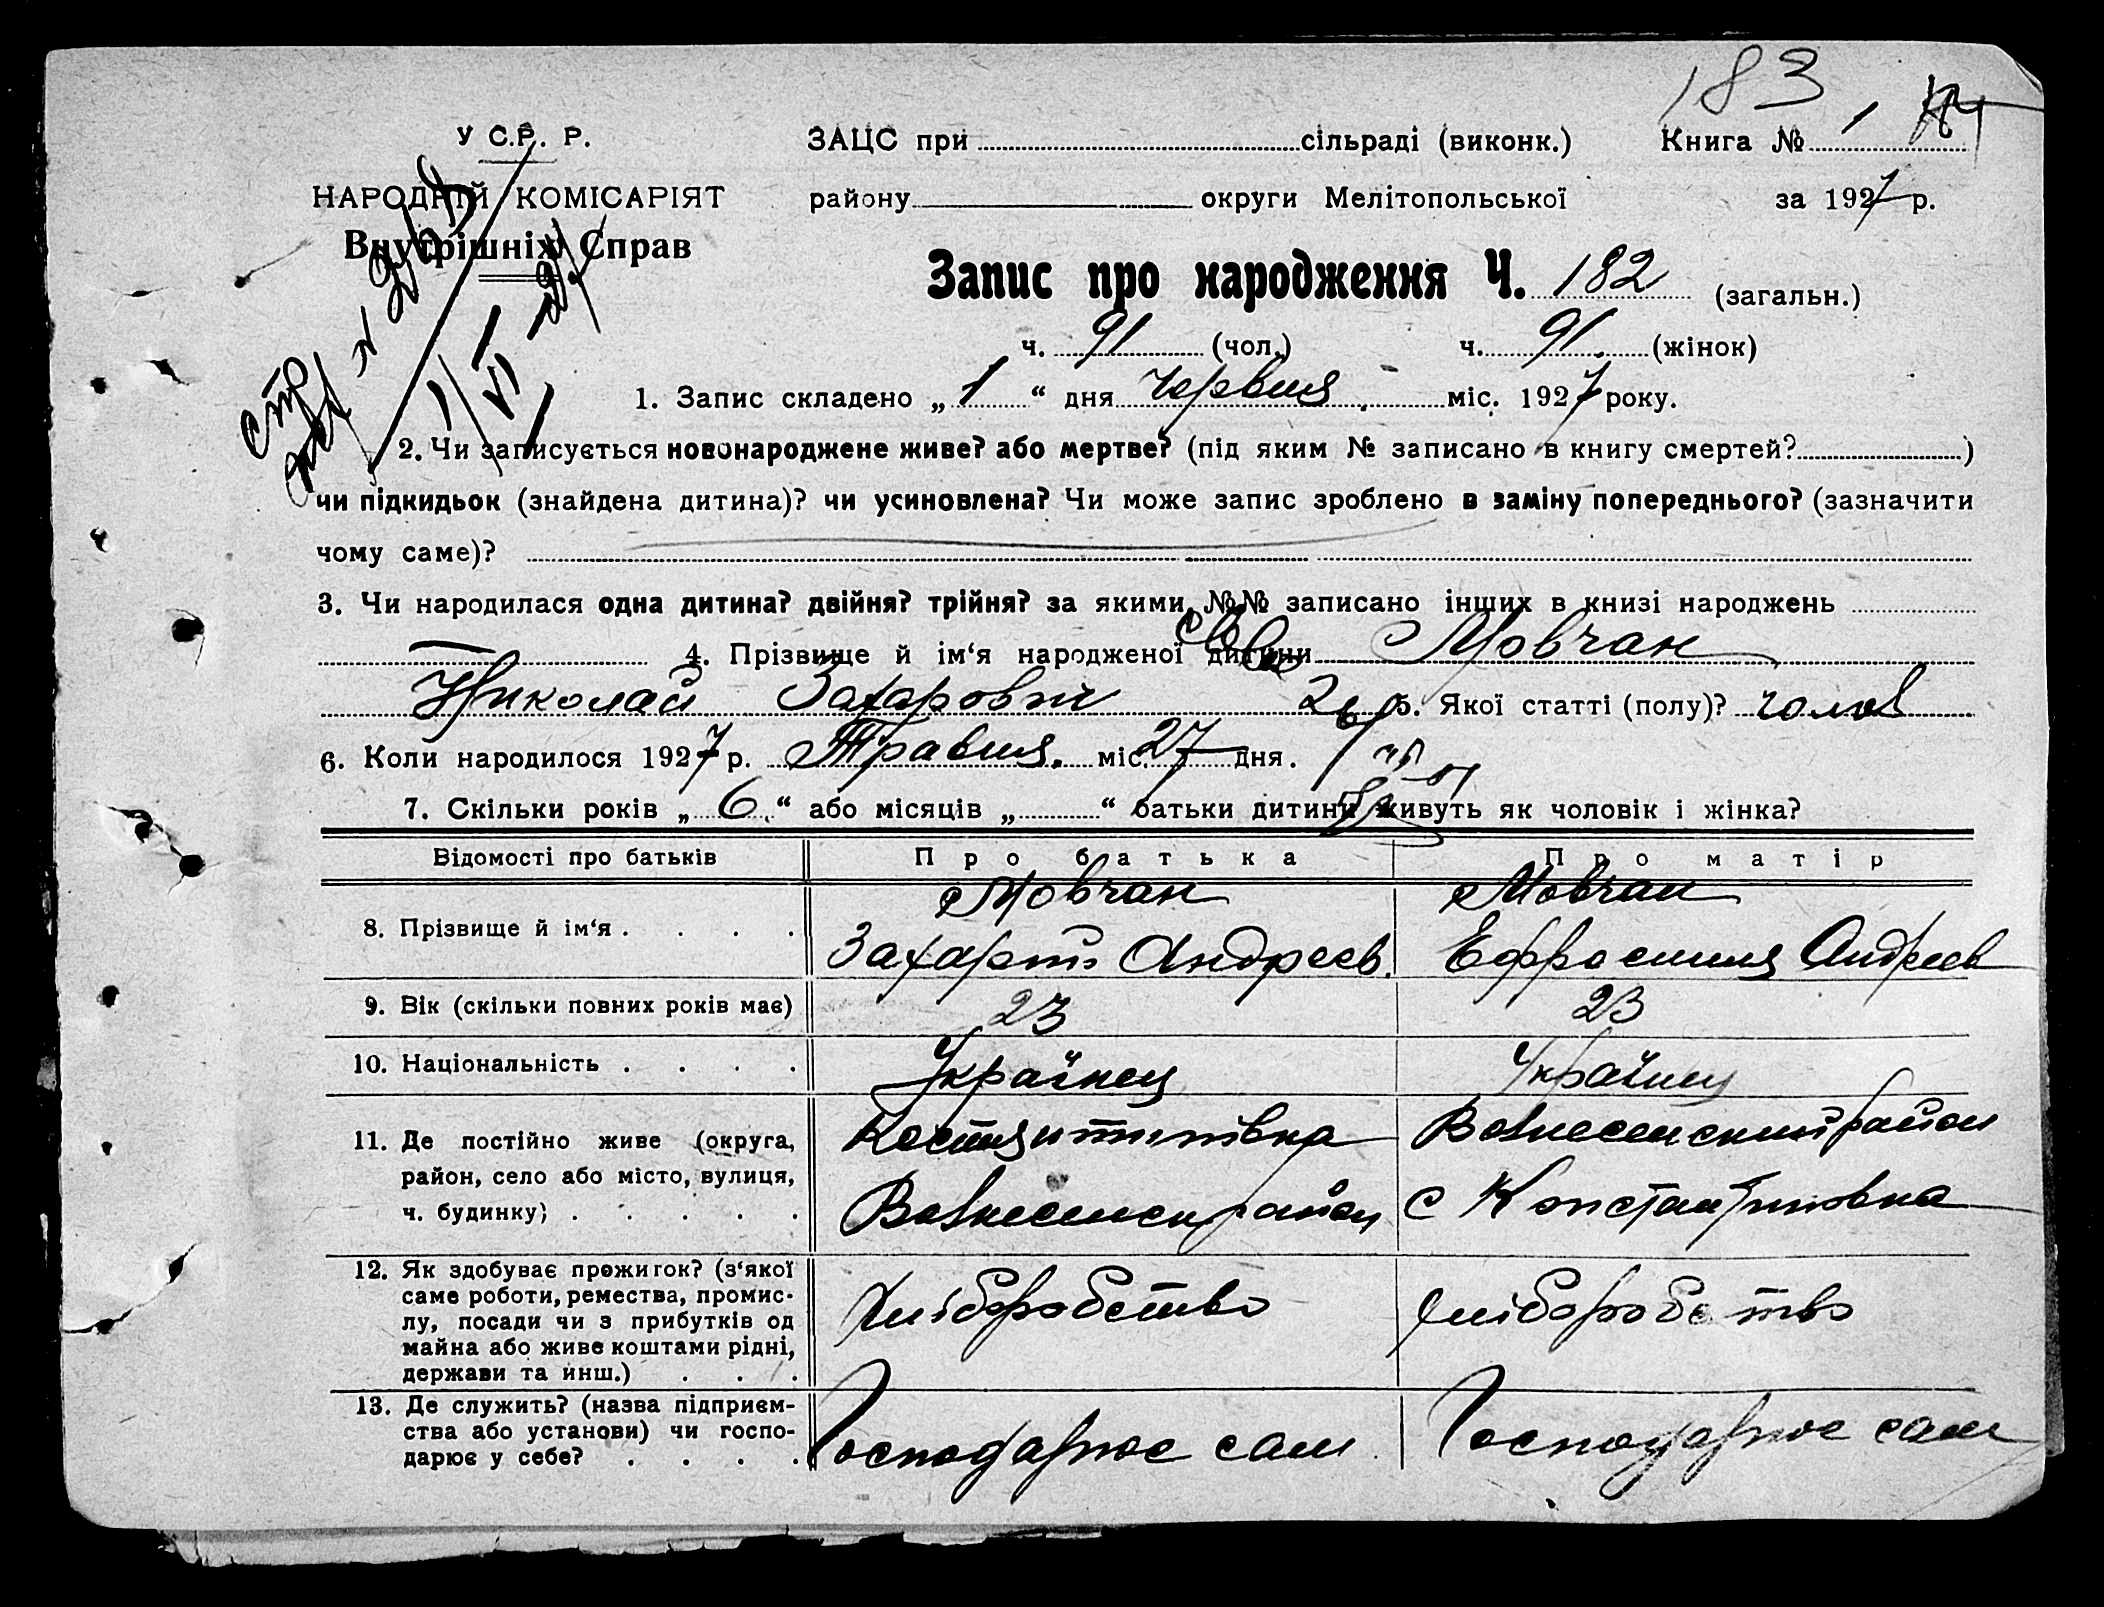 183
У С.Р. Р.
ЗАЦС при сільраді (виконк.) Книга № 1
НАРОДНІЙ КОМІСАРІЯТ
району округи Мелітопольської за 1927 р.
Внутрішніх Справ
Запис про народження Ч. 182 (загальн.)
ч. 91 (чол.) ч. 91. (жінок)
1. Запис складено „ 1 “ дня Червця міс. 1927 року.
2. Чи записується новонароджене живе? або мертве? (під яким № записано в книгу смертей? )
чи підкидьок (знайдена дитина)? чи усиновлена? Чи може запис зроблено в заміну попереднього? (зазначити
чому саме)?
3. Чи народилася одна дитина? двійня? трійня? за якими №№ записано інших в книзі народжень
4. Прізвище й ім‘я народженої дитини Мовчан
Николай Захарович 5. Якої статті (полу)? чолов
6. Коли народилося 1927 р. Травця. міс. 27 дня.
7. Скільки років „ 6 “ або місяців „ “ батьки дитини живуть як чоловік і жінка?
Відомості про батьків Про батька Про матір
8. Прізвище й ім‘я . . . . Мовчан Мовчан
Захарт Андреев. Ефросиния Андреев
9. Вік (скільки повних років має) 23 23
10. Національність . . . . Українец Українец
11. Де постійно живе (округа, Вознесенский район
район, село або місто, вулиця,
ч. будинку) . . . . . Вознесенск район с Константиновка
12. Як здобуває прожиток? (з‘якої
саме роботи, ремества, промис-
лу, посади чи з прибутків од Хліборобство хліборобство
майна або живе коштами рідні,
держави та инш.) . . .
13. Де служить? (назва підприєм-
ства або установи) чи госпо- Господарює сам Господарює сам
дарює у себе? . . . .